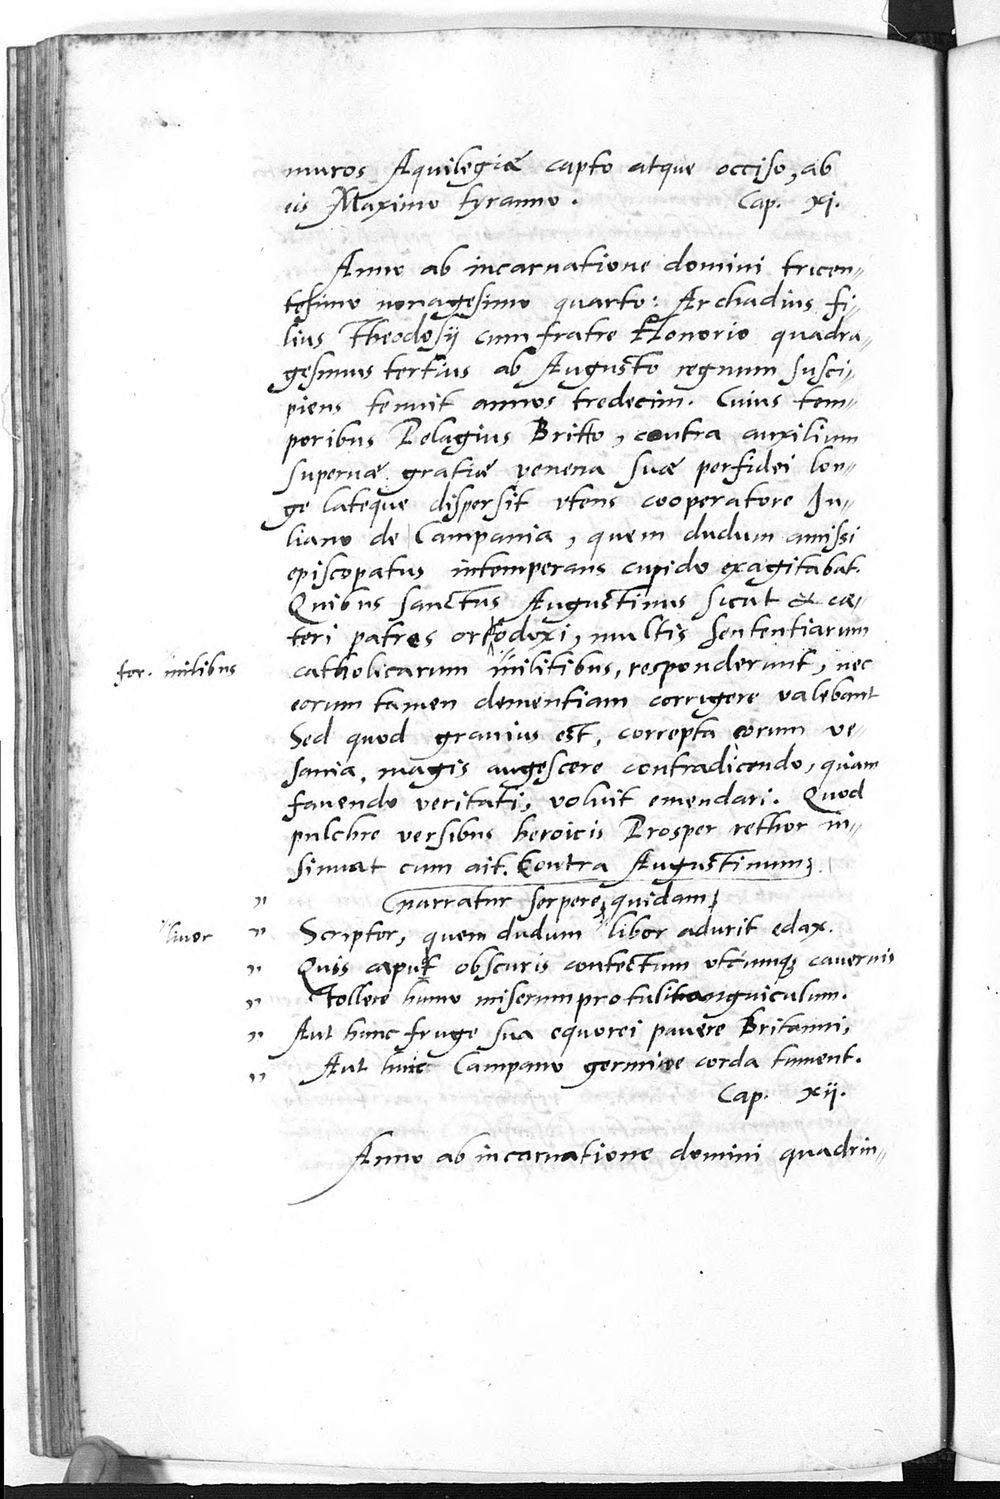 muros Aquilegiæ capto atque occiso, ab
eis Maximo tyranno. Cap. xi.
Anno ab incarnatione domini tricen„
tesimo nonagesimo quarto: Archadius fi„
lius Theodosij cum fratre Honorio quadra„
gesimus tertius ab Augusto regnum susci„
piens tenuit annos tredecim. Cuius tem„
poribus Pelagius Britto, contra auxilium
supernæ gratiæ venena suæ perfidei lon„
ge lateque dispersit vtens cooperatore Iu„
liano de Campania, quem dudum amissi
episcopatus intemperans cupido exagitabat.
Quibus sanctus Augustinus sicut & cæ„
teri patres orthodoxi, multis sententiarum
for. milibus
catholicarum militibus, responderunt, nec
eorum tamen dementiam corrigere valebant
Sed quod grauius est, correpta eorum ve„
sania, magis augescere contradicendo, quam
fauendo veritati, voluit emendari. Quod
pulchre versibus heroicis Prosper rethor in„
sinuat cum ait. Contra Augustinum
„ narratur serpere quidam
liuor
„ Scriptor, quem dudum libor adurit edax.
„ Quis caput obscuris contectum vtcumq; cauernis
„ Tollere humo miserum protulit anguiculum.
„ Aut hunc fruge sua equorei pauere Britanni,
„ Aut huic Campano germine corda tument.
Cap. xij.
Anno ab incarnatione domini quadrin„